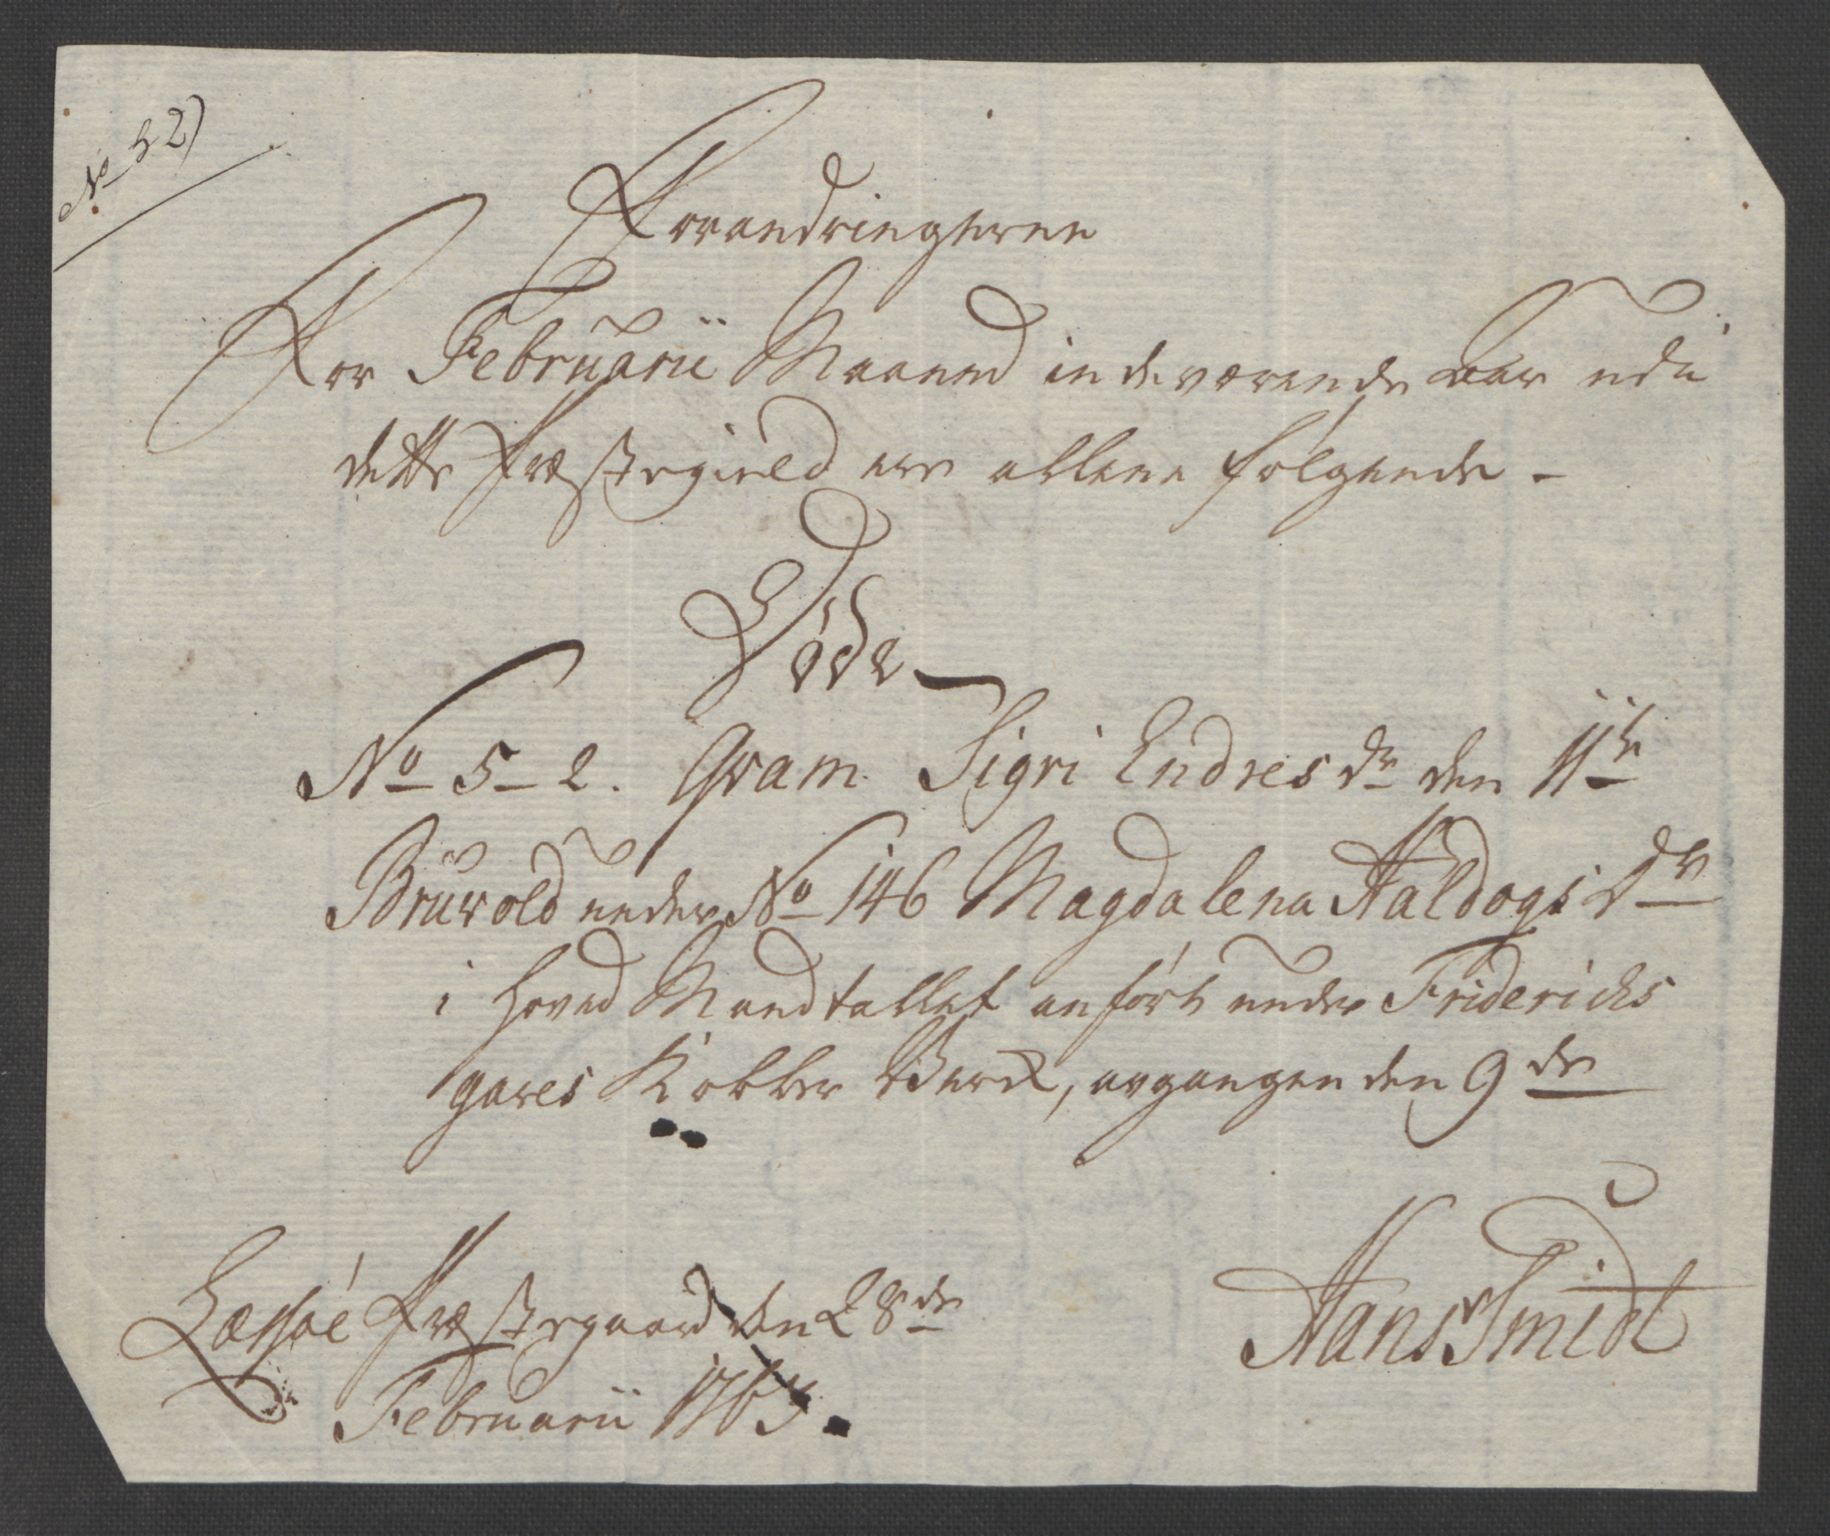 No 52)
Forandringerne
For Februarii Maaned indeværende Aar udi
dette Præstegield ere allene følgende -
Døde
No 5 - 2. Qvam Sigri Endresdr den 11te
Bruvold under No 146 Magdalena Haldogsdr
i Hoved Mandtallet anført under Friderichs
gaves Kobber Verck, avgangen den 9de
Læssøe Præstegaard den 28de
Februarii 1763.
Hans Smidt